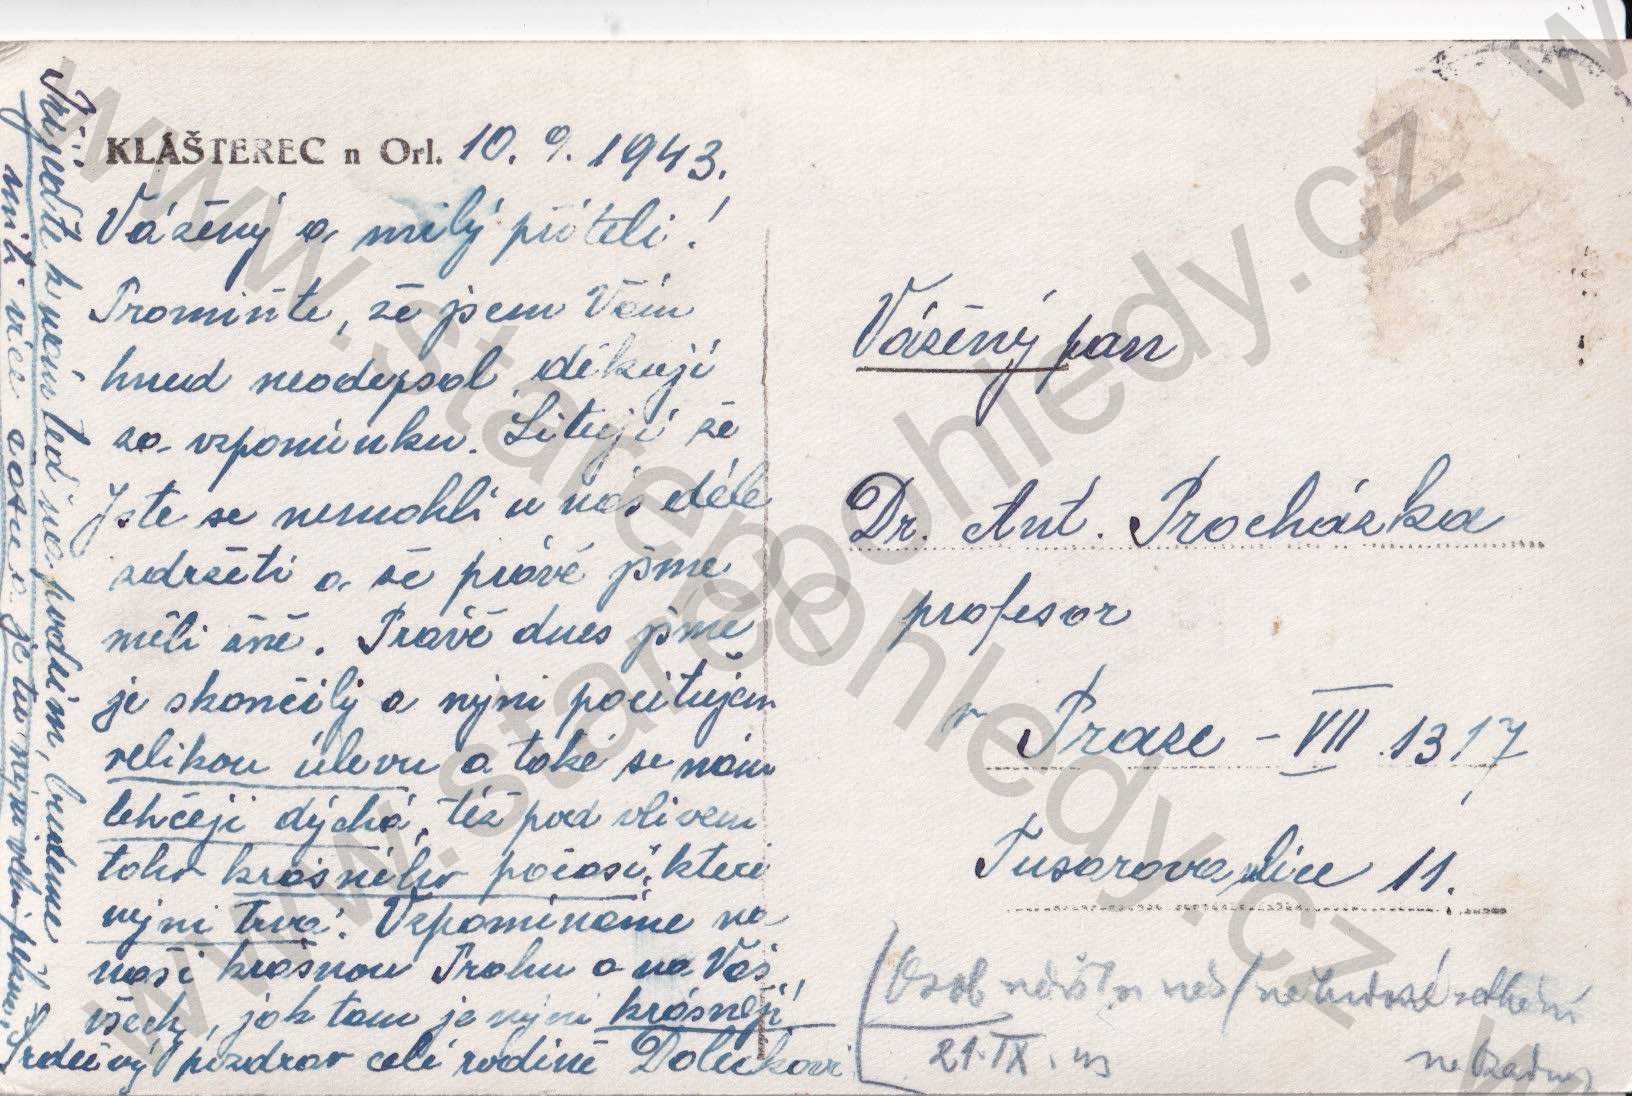 KLÁŠTEREC n Orl. 10. 9. 1943.
Vážený a milý příteli!
Promiňte, že jsem Vám
hned neodepsal, děkuji
za vzpomínku. Lituji že
Jste se nemohli u nás déle
zdržeti a že právě jsme
měli žně. Právě dnes jsme
je skončily a nyní pociťujem
velikou úlevu a také se nám
lehčeji dýchá, též pod vlivem
toho krásného počasí, které
nyní trvá. Vzpomínáme na
naši krásnou Prahu a na Vás
všech, jak tam je nyní krásněji!
Srdečný pozdrav celé rodině
Přijeďte k nám teď na podzim, budeme
míti více času a je tu nyní
Vážený pan
Dr. Ant. Procházka
profesor
v Praze - VII 1317
Tusarova ulice 11.
21. IX. 43
www.starepohledy.cz
www.starepohledy.cz